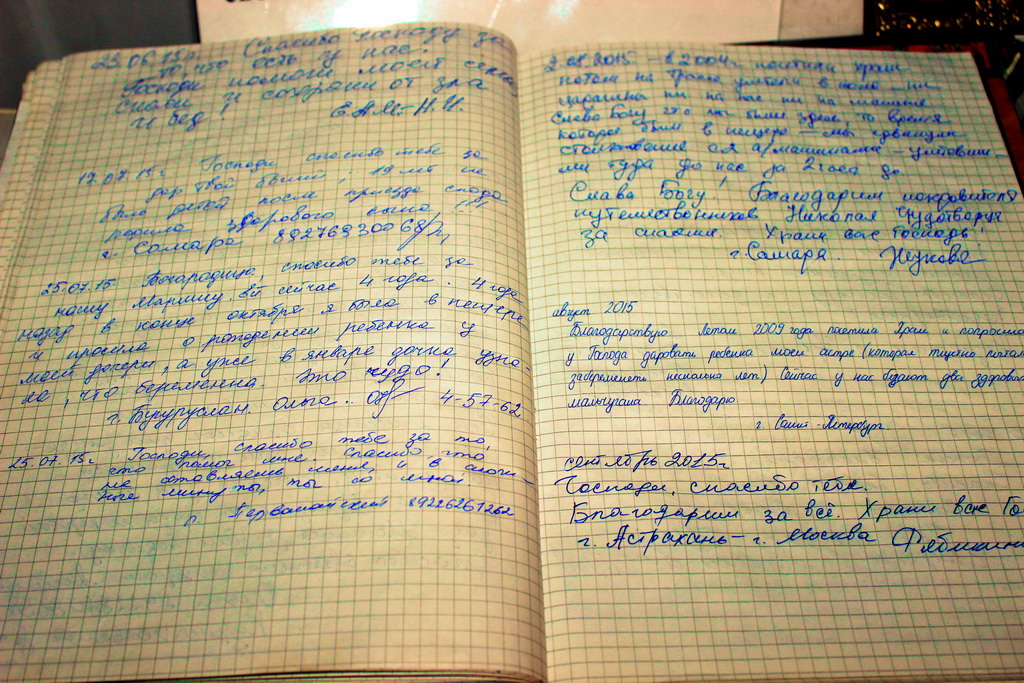 23.06.15г. Спасибо Господу за
то, что есть у нас.
Господи помоги моей семье
и сохрани от зла
и бед!
17.07.15г Господи спасибо тебе за
дар твой; 19 лет не
было деток после приезда сюда
родила здорового сына!!!
г. Самара 89276930068
25.07.15 Богородица, спасибо тебе за
нашу Марину. Ей сейчас 4 года. 4 года
назад в конце октября я была в пещере
и просила о рождении ребенка у
моей дочери, а уже в январе дочка узна-
ла, что беременна. Это чудо!
г. Бугуруслан. Ольга. 4-57-62
25.07.15г Господи, спасибо тебе за то,
что помог мне. Спасибо, что
не оставляешь меня, и в
ные минуты, ты со мной
п. Первомайский 89226267262
2.08.2015 – в 2004г. посетили храм
потом на трассе улетели в поле – ни
царапины ни на нас ни на машине
Слава Богу что мы были здесь, то время
которое были в пещере – мы
столкновение с а/машинами – улетавши-
ми туда до нас за 2 часа до
Слава Богу! Благодарим покровителя
путешественников Николая Чудотворца
за спасение. Храни вас Господь!
г. Самара.
август 2015
Благодарствую Летом 2009 года посетила Храм и попросила
у Господа даровать ребенка моей сестре (которая тщетно пытала
забеременеть несколько лет) Сейчас у нас бегают два здоровых
мальчугана Благодарю
г. Санкт-Петербург
сентябрь 2015г
Господи, спасибо тебе.
Благодарим за всё. Храни всех Го
г. Астрахань – г. Москва